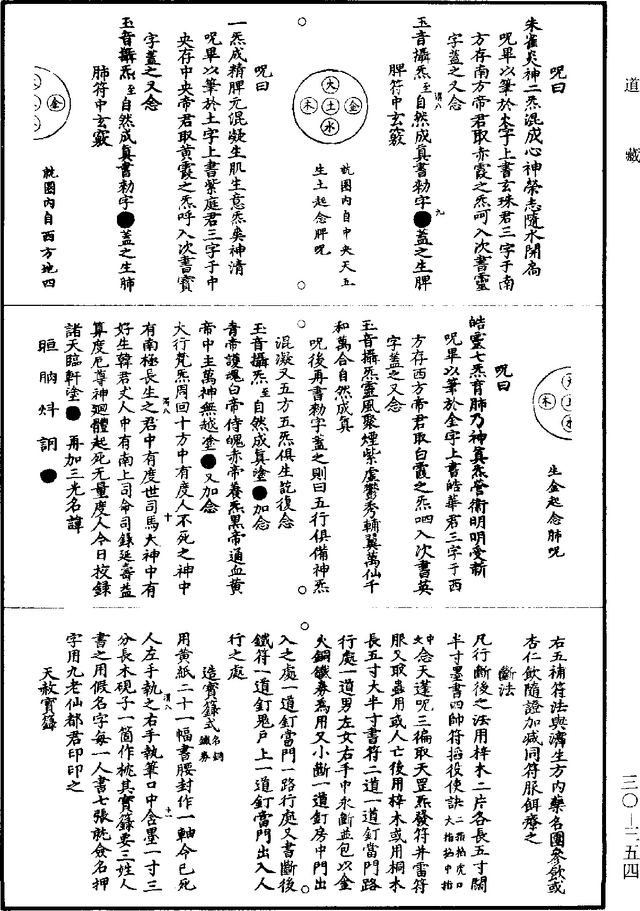 道藏
三〇—三五四
呪曰
朱雀炎神二炁混成心神榮志隨水開扃
呪畢以筆於木字上書玄珠君三字于南
方存南方帝君取赤霞之炁呵入次書靈
字蓋之又念
玉音攝炁至自然成真書勑字●蓋之生脾
脾符中玄竅
就圈內自中央天五
生土起念脾呪
火
木土金
水
呪曰
一炁成精脾元混凝生肌生意炁奧神清
呪畢以筆於土字上書紫庭君三字于中
央存中央帝君取黃霞之炁呼入次書寶
字蓋之又念
玉音攝炁至自然成真書勑字●蓋之生肺
肺符中玄竅
就圈內自西方地四
金
生金起念肺呪
木
呪曰
皓靈七炁育肺乃神真炁營衛明明受新
呪畢以筆於金字上書皓華君三字于西
方存西方帝君取白霞之炁呬入次書英
字蓋之又念
玉音攝炁靈風聚煙紫虛鬱秀輔翼萬仙千
和萬合自然成真
呪後再書勑字蓋之則曰五行俱備神炁
混凝又五方五炁俱生訖復念
玉音攝炁至自然成真塗●加念
青帝護魂白帝侍魄赤帝養炁黑帝通血黃
帝中主萬神無越塗●又加念
大行梵炁周回十方中有度人不死之神中
有南極長生之君中有度世司馬大神中有
好生韓君丈人中有南上司命司錄延壽益
算度厄尊神迴體起死无量度人今日校錄
諸天臨軒塗● 再加三光名諱
晅 䏎 炓 詷 ●
右五補符法與濟生方內藥名團參飲或
杏仁飲隨證加減同符服餌療之
斷法
凡行斷後之法用梓木二片各長五寸闊
半寸墨書四帥符掐役使訣
念天蓬呪三徧取天罡炁發符并雷符
服又取蟲用或人亡後用梓木或用桐木
長五寸大半寸書符二道一道釘當門路
行處一道男左女右手中永斷並包以金
火銅鐵券為用又小斷一道釘房中門出
入之處一道釘當門一路行處又書斷後
鐵符一道釘鬼戶上一道釘當門出入人
行之處
造寶籙式
用黃紙二十一幅書腰封作一軸令已死
人左手執之右手執筆口中含墨一寸三
分長木硯子一箇作桃其寶籙要三姓人
書之用假名字每一人書七張就僉名押
字用九老仙都君印印之
天赦寶籙